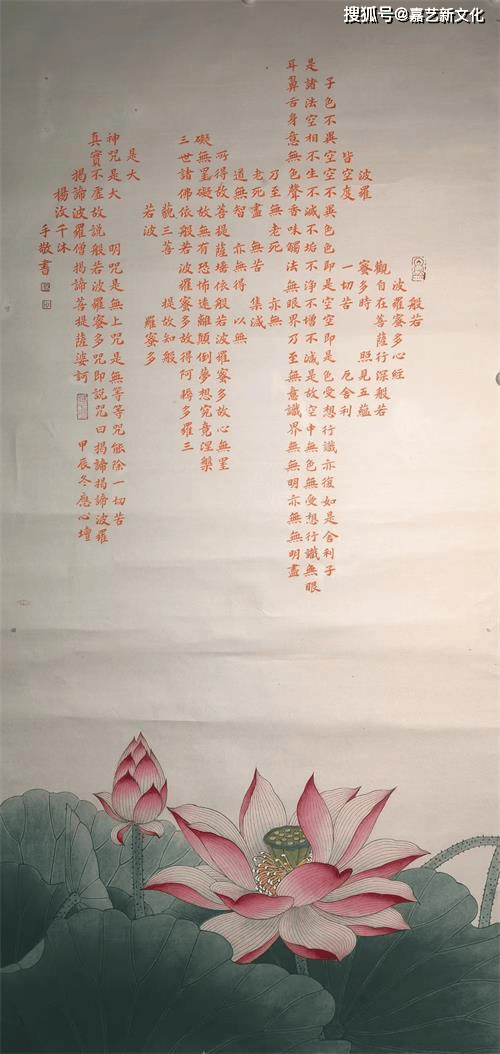 搜狐号@嘉艺新文化
般若
波羅蜜多心經
觀自在菩薩行深般若
波羅 蜜多時 照見五蘊
皆空度 一切苦 厄舍利
子色不異空空不異色色即是空空即是色受想行識亦復如是舍利子
是諸法空相不生不滅不垢不淨不增不減是故空中無色無受想行識無眼
耳鼻舌身意無色聲香味觸法無眼界乃至無意識界無無明亦無無明盡
乃至無老死 亦無
老死盡 無苦 集滅
道無智 亦無得 以無
所得故菩提薩埵依般若波羅蜜多故心無罣
礙無罣礙故無有恐怖遠離顛倒夢想究竟涅槃
三世諸佛依般若波羅蜜多故得阿耨多羅三
藐三菩 提故知般
若波 羅蜜多
是大
神咒是大 明咒是無上咒是無等等咒能除一切苦
真實不虛故說般若波羅蜜多咒即說咒曰揭諦揭諦波羅
揭諦波羅僧揭諦菩提薩婆訶 甲辰冬應心壇
楊汝千沐
手敬書